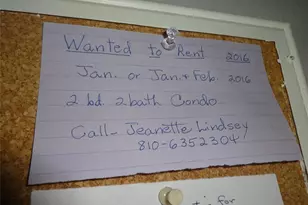 Wanted to Rent 2016
Jan. or Jan. + Feb. 2016
2 bd. 2 bath Condo
Call - Jeanette Lindsey
810-6352304
for